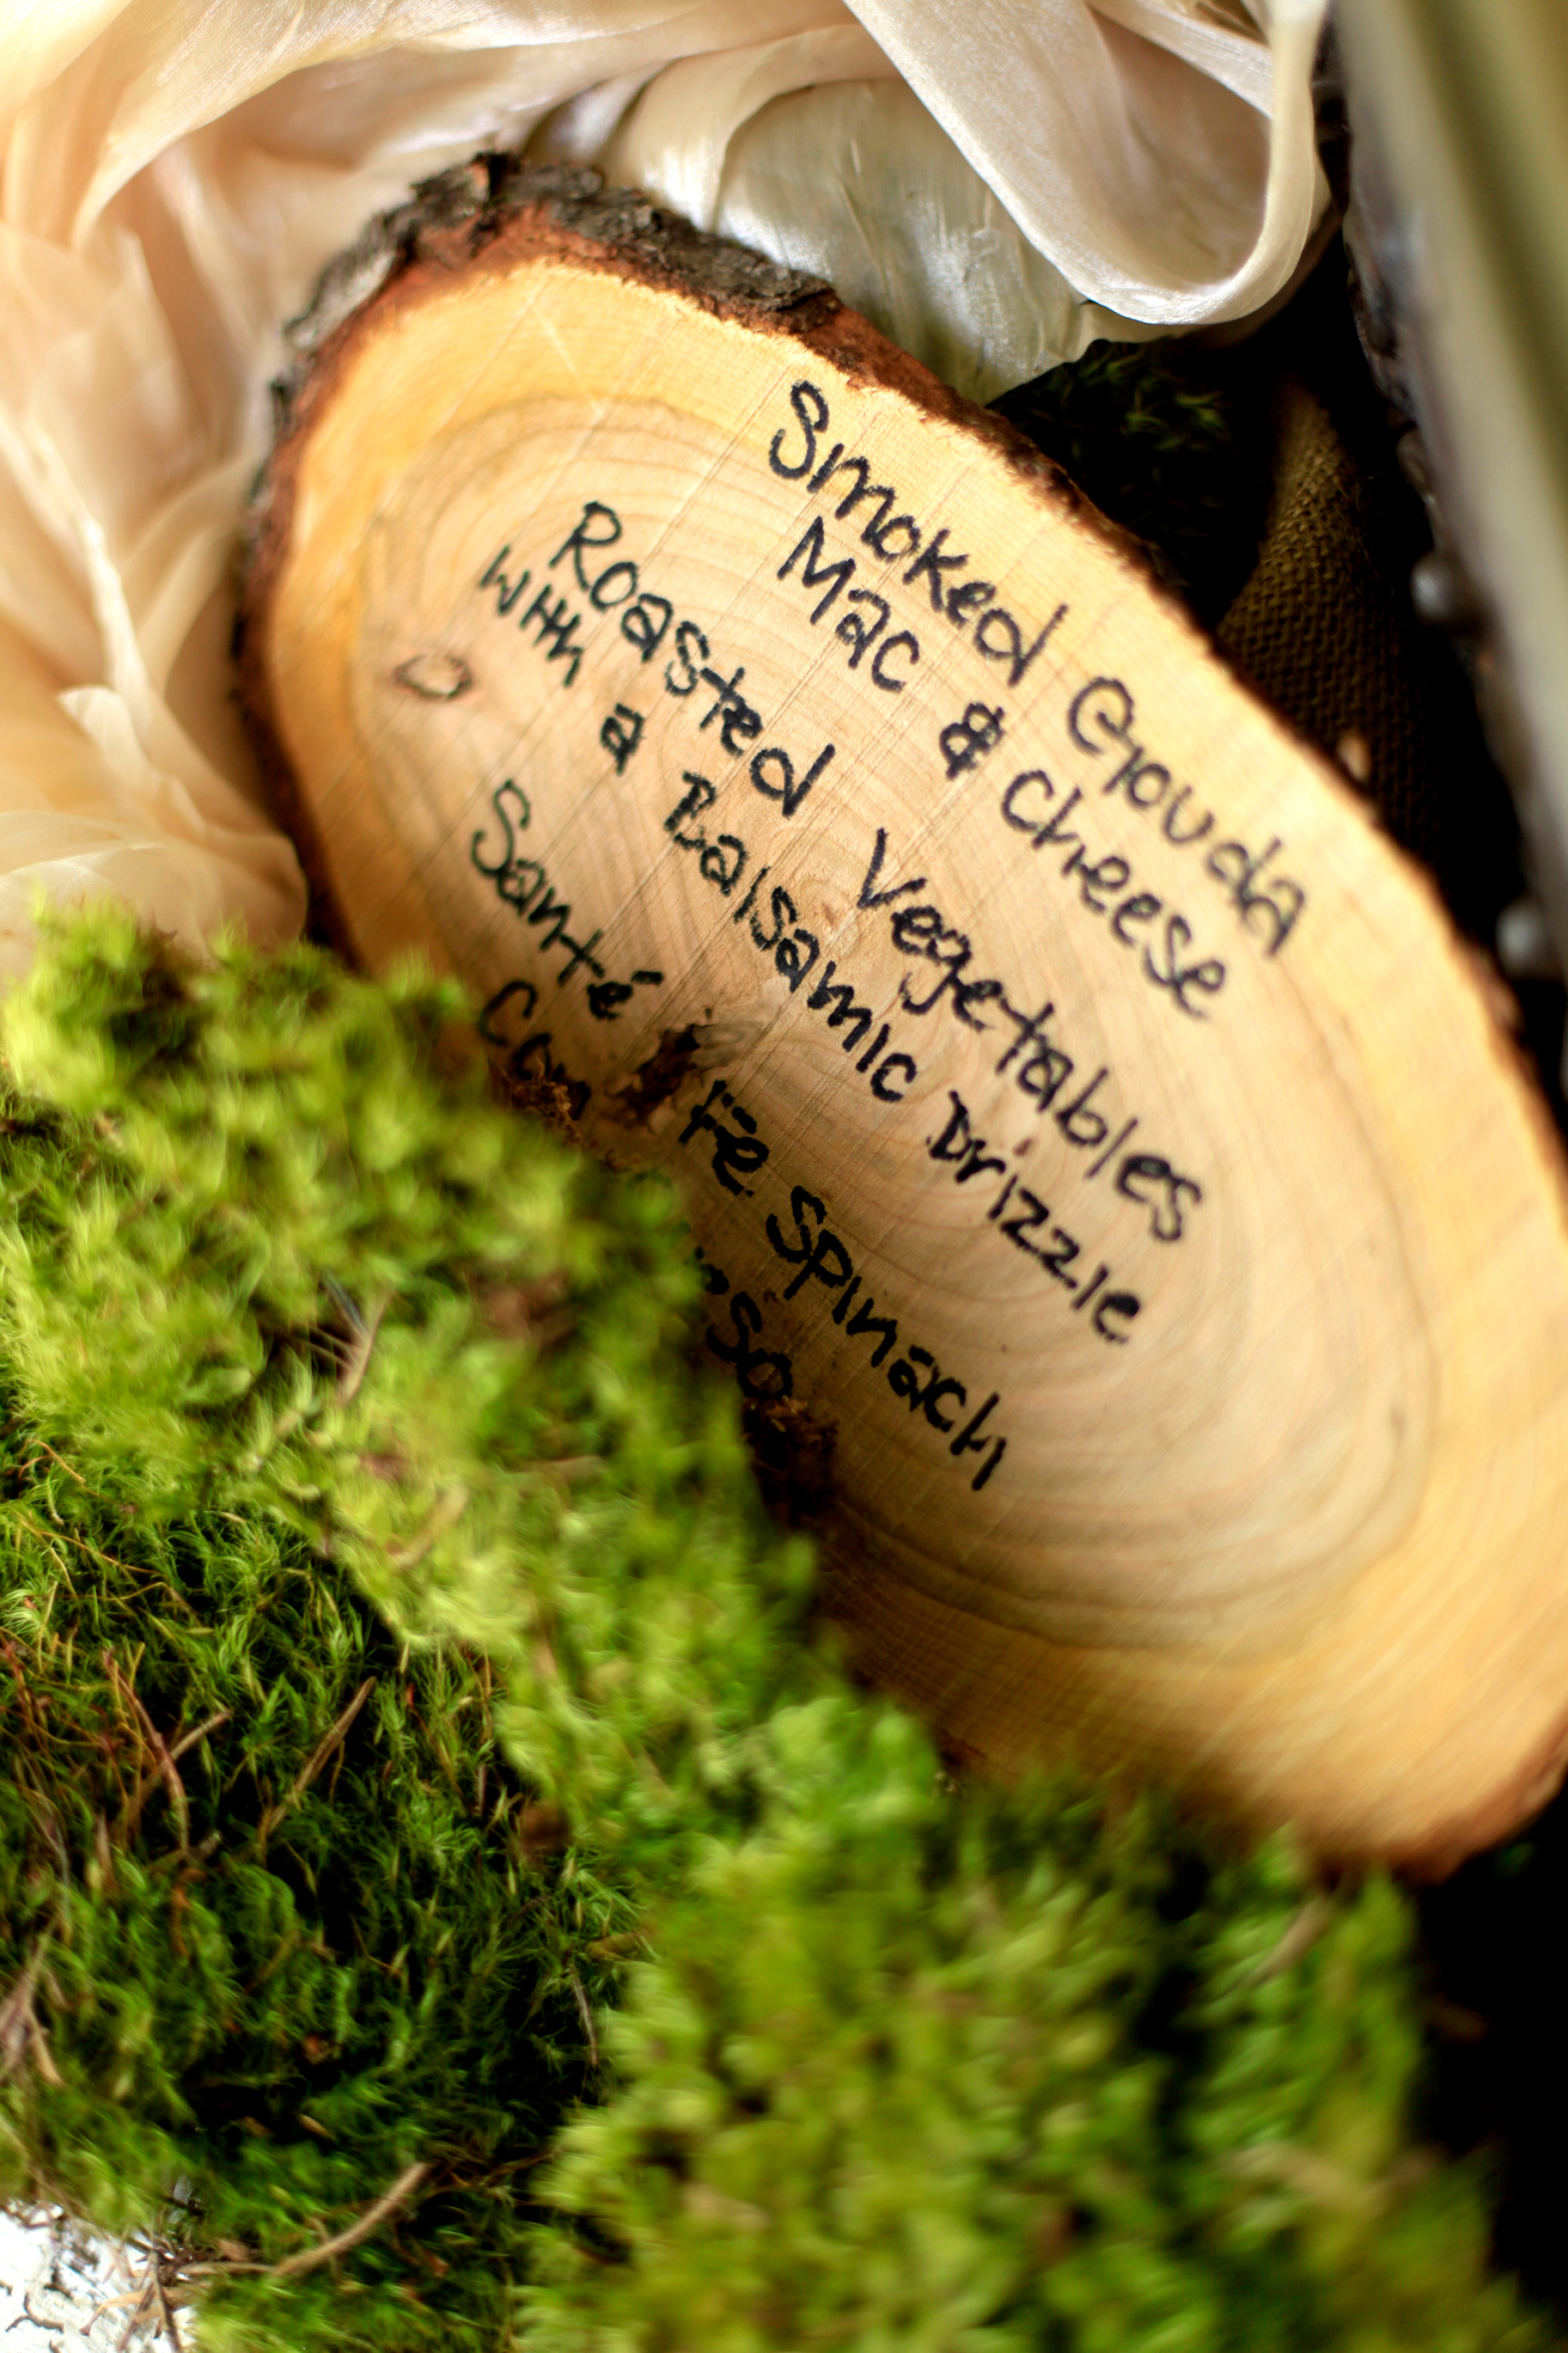 Smoked Gouda
Mac & Cheese
Roasted Vegetables
with a Balsamic Drizzle
Santé Fe Spinach